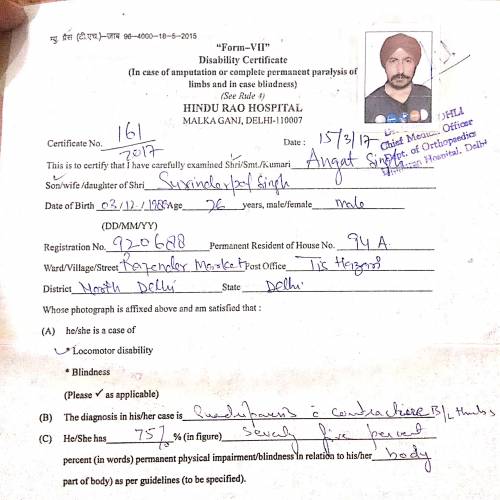 न्यु. प्रैस (टी.एच.)–जाब 96–4000–18–5–2015
“Form–VII”
Disability Certificate
(In case of amputation or complete permanent paralysis of
limbs and in case blindness)
(See Rule 4)
HINDU RAO HOSPITAL
MALKA GANJ, DELHI-110007
OHLI
Chief Medical Officer
Dept. of Orthopaedics
Hospital, Delhi
Certificate No. 161/2017 Date : 15/3/17
This is to certify that I have carefully examined Shri/Smt./Kumari Angat Singh
Son/wife /daughter of Shri Surinder Singh
Date of Birth 03/12/1989 Age 26 years, male/female male
(DD/MM/YY)
Registration No. 920688 Permanent Resident of House No. 94 A
Ward/Village/Street Rajender Market Post Office Tis Hazari
District North Delhi State Delhi
Whose photograph is affixed above and am satisfied that :
(A) he/she is a case of
* Locomotor disability
* Blindness
(Please ✓ as applicable)
(B) The diagnosis in his/her case is Quadriparesis c contracture B/L thumbs
(C) He/She has 75% % (in figure) seventy five percent
percent (in words) permanent physical impairment/blindness in relation to his/her body
part of body) as per guidelines (to be specified).